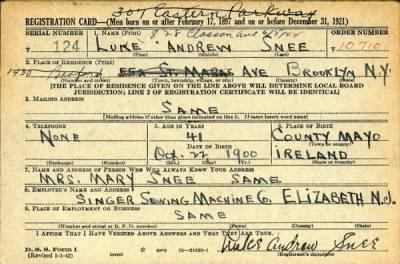 301 Eastern Parkway
REGISTRATION CARD—(Men born on or after February 17, 1897 and on or before December 31, 1921)
SERIAL NUMBER 1. NAME (Print) 828 Classon Ave ORDER NUMBER
T 124 LUKE ANDREW SNEE 10710
(First) (Middle) (Last)
2. PLACE OF RESIDENCE (Print)
1430 Bedford AVE BROOKLYN N.Y.
(Number and street) (Town, township, village, or city) (County) (State)
[THE PLACE OF RESIDENCE GIVEN ON THE LINE ABOVE WILL DETERMINE LOCAL BOARD
JURISDICTION; LINE 2 OF REGISTRATION CERTIFICATE WILL BE IDENTICAL]
3. MAILING ADDRESS
SAME
[Mailing address if other than place indicated on line 2. If same insert word same]
4. TELEPHONE 5. AGE IN YEARS 6. PLACE OF BIRTH
NONE 41 COUNTY MAYO
DATE OF BIRTH (Town or county)
Oct. 22 1900 IRELAND
(Exchange) (Number) (Mo.) (Day) (Yr.) (State or country)
7. NAME AND ADDRESS OF PERSON WHO WILL ALWAYS KNOW YOUR ADDRESS
MRS. MARY SNEE SAME
8. EMPLOYER'S NAME AND ADDRESS
SINGER SEWING MACHINE CO. ELIZABETH N.J.
9. PLACE OF EMPLOYMENT OR BUSINESS
SAME
(Number and street or R. F. D. number) (Town) (County) (State)
I AFFIRM THAT I HAVE VERIFIED ABOVE ANSWERS AND THAT THEY ARE TRUE.
D. S. S. Form 1 GPO 16—21630-1 Luke Andrew Snee
(Revised 1-1-42) (Registrant's signature)